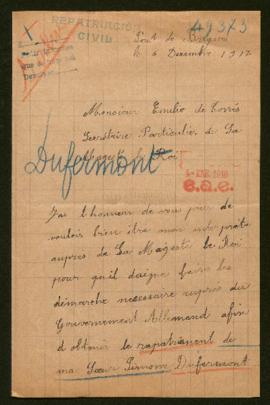 49373
REPATRIACION
CIVIL
Pont de
le 6 Décembre 1917
Monsieur Emilio de Torrès
Secrétaire Particulier de Sa
Majesté le Roi
Dufermont
4-ENE. 1918
J'ai l'honneur de vous prier de
vouloir bien être mon interprète
auprès de Sa Majesté le Roi
pour qu'il daigne faire les
démarche nécessaire auprès du
Gouvernement Allemand afin
d'obtenir le rapatriement de
ma Sœur Simone Dufermont